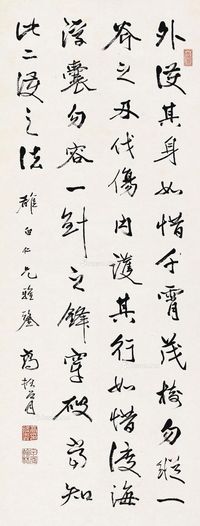 外護其身如惜干霄茂樹勿縱一
斧之刃伐傷內護其行如惜渡海
浮囊勿容一針之鋒穿破當知
此二護之法
白仁兄雅鑒 高振霄